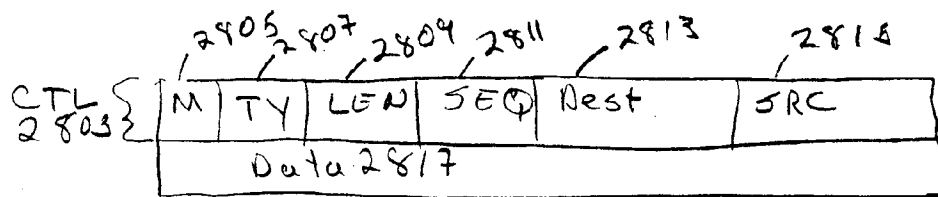 2805 2807 2809 2811 2813 2815
CTL M TY LEN SEQ Dest SRC
2803
Data 2817